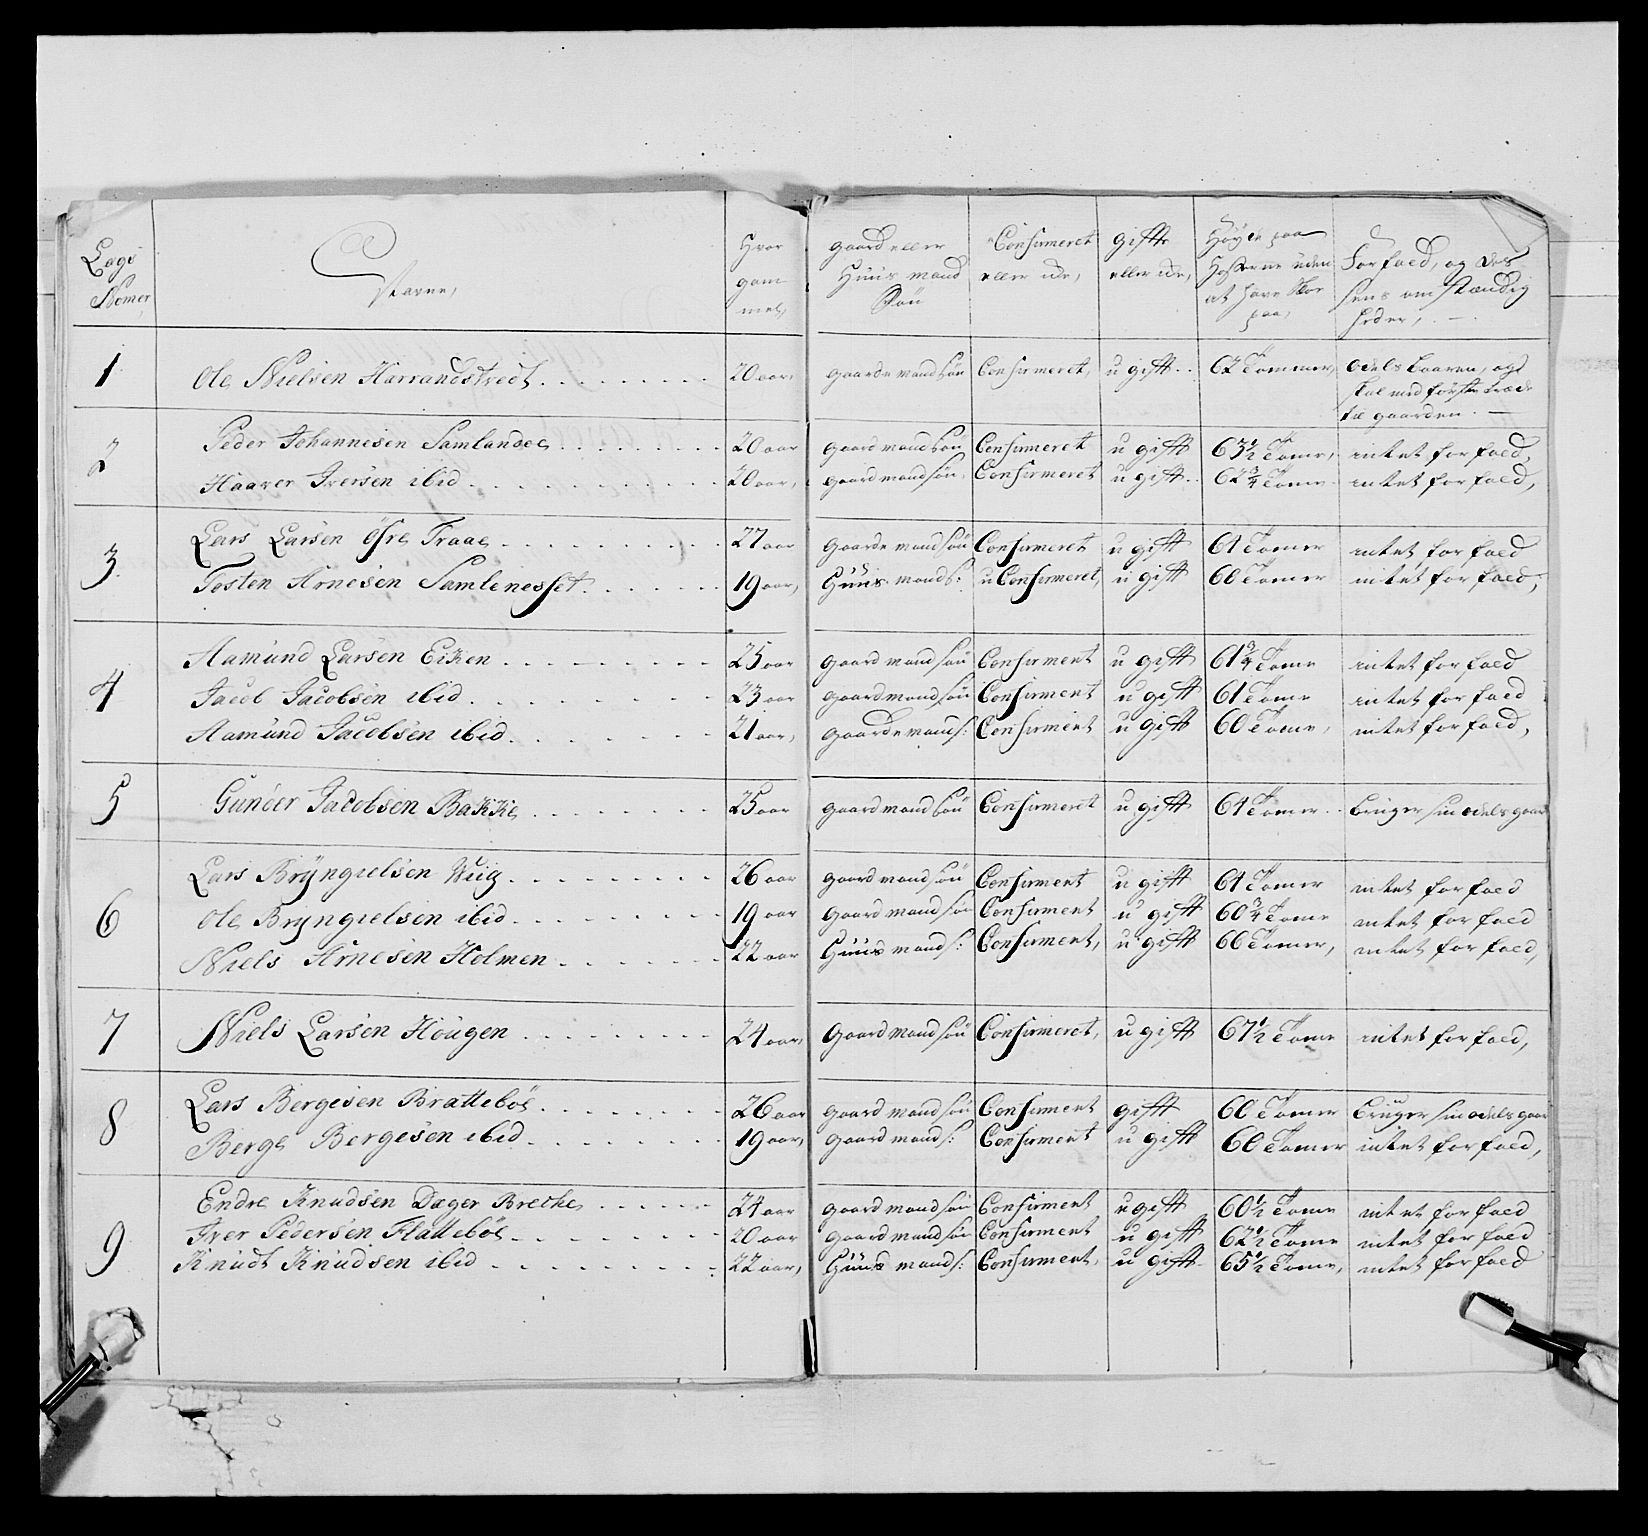 Lægs Nomer
Navne,
Hvor gam mel,
gaard eller Huus mand Søn
Confirmeret eller icke,
gifft eller icke,
Høyde paa Hosserne uden at have Skoe paa,
Forfald, og des sens omstændig heder,
1 Ole Nielsen Harrandstredt 20 aar, gaarde mand søn Confirmeret, u gift 62 Tommer, odels baaren, og skal med første træde til gaarden.
2 Peder Johannesen Samlandee 20 aar gaard mand søn Confirmeret u gift 63 1/2 Tome, intet forfald,
Haaver Iversen ibid 20 aar, gaard mand søn, Confirmeret u gift 62 3/4 Tome intet forfald,
3 Lars Larsen Øfre Traae 27 aar gaarde mand søn Confirmeret u gift 61 Tomer intet forfald
Tosten Arnesen Samlenesset 19 aar, Huus mand s: u Confirmeret, u gift 60 Tomer intet forfald,
4 Aamund Larsen Eiken 25 aar gaard mand søn Confirment u gift 61 3/4 Tome intet forfald
Jacob Jacobsen ibid 23 aar gaard mand søn Confirment u gift 61 Tome intet forfald
Aamund Jacobsen ibid 21 aar, gaarde mand s: Confirment u gift 60 Tome, intet forfald,
5 Gunder Jacobsen Bakke 25 aar gaard mand søn Confirmeret u gift 64 Tomer bruger sin odels gaar
6 Lars Bryngielsen Wiig 26 aar gaard mand søn Confirment u gift 61 Tomer intet forfald
Ole Bryngielsen ibid 19 aar gaard mand søn Confirment u gift 60 3/4 Tome intet forfald
Niels Arnesen Holmen 22 aar Huus mand s: Confirment, u gift 66 Tomer, intet forfald,
7 Niels Larsen Hougen 24 aar, gaard mand søn Confirmeret, u gift 67 1/2 Tome intet forfald,
8 Lars Bergesen Brattebøe 26 aar gaard mand søn Confirment gifft 60 Tomer bruger sin odels gaar
Berge Bergesen ibid 19 aar, gaard mand s: Confirment u gift 60 Tomer intet forfald,
9 Endre Knudsen Dæger Brecke 24 aar gaard mand søn Confirment u gift 60 1/2 Tome intet forfald
Iver Pedersen Flattebøe 20 aar gaard mand søn Confirment u gift 62 1/2 Tome intet forfald
Knudt Knudsen ibid 22 aar, Huus mand s: Confirment, u gift 65 1/2 Tome, intet forfald